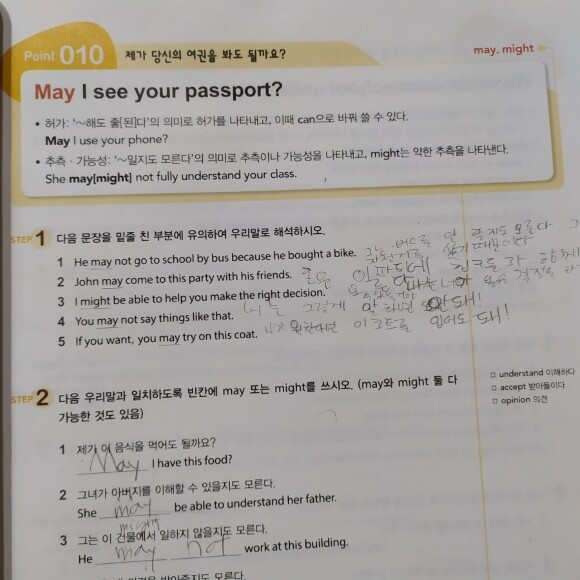 Point 010 제가 당신의 여권을 봐도 될까요? may, might
May I see your passport?
• 허가: '~해도 좋[된]다'의 의미로 허가를 나타내고, 이때 can으로 바꿔 쓸 수 있다.
May I use your phone?
• 추측 · 가능성: '~일지도 모른다'의 의미로 추측이나 가능성을 나타내고, might는 약한 추측을 나타낸다.
She may[might] not fully understand your class.
STEP 1 다음 문장을 밑줄 친 부분에 유의하여 우리말로 해석하시오.
1 He may not go to school by bus because he bought a bike. 그는 버스로 안 갈지도 모른다
자전거를 샀기 때문이다
2 John may come to this party with his friends. 존은 이 파티에 친구들과 함께
3 I might be able to help you make the right decision. 나는 너가 옳은 결정을
4 You may not say things like that. 너는 그렇게 말하면 안돼!
5 If you want, you may try on this coat. 너가 원한다면 이 코트를 입어도 돼!
STEP 2 다음 우리말과 일치하도록 빈칸에 may 또는 might를 쓰시오. (may와 might 둘 다
가능한 것도 있음)
□ understand 이해하다
□ accept 받아들이다
□ opinion 의견
1 제가 이 음식을 먹어도 될까요?
May I have this food?
2 그녀가 아버지를 이해할 수 있을지도 모른다.
She may be able to understand her father.
might
3 그는 이 건물에서 일하지 않을지도 모른다.
He may not work at this building.